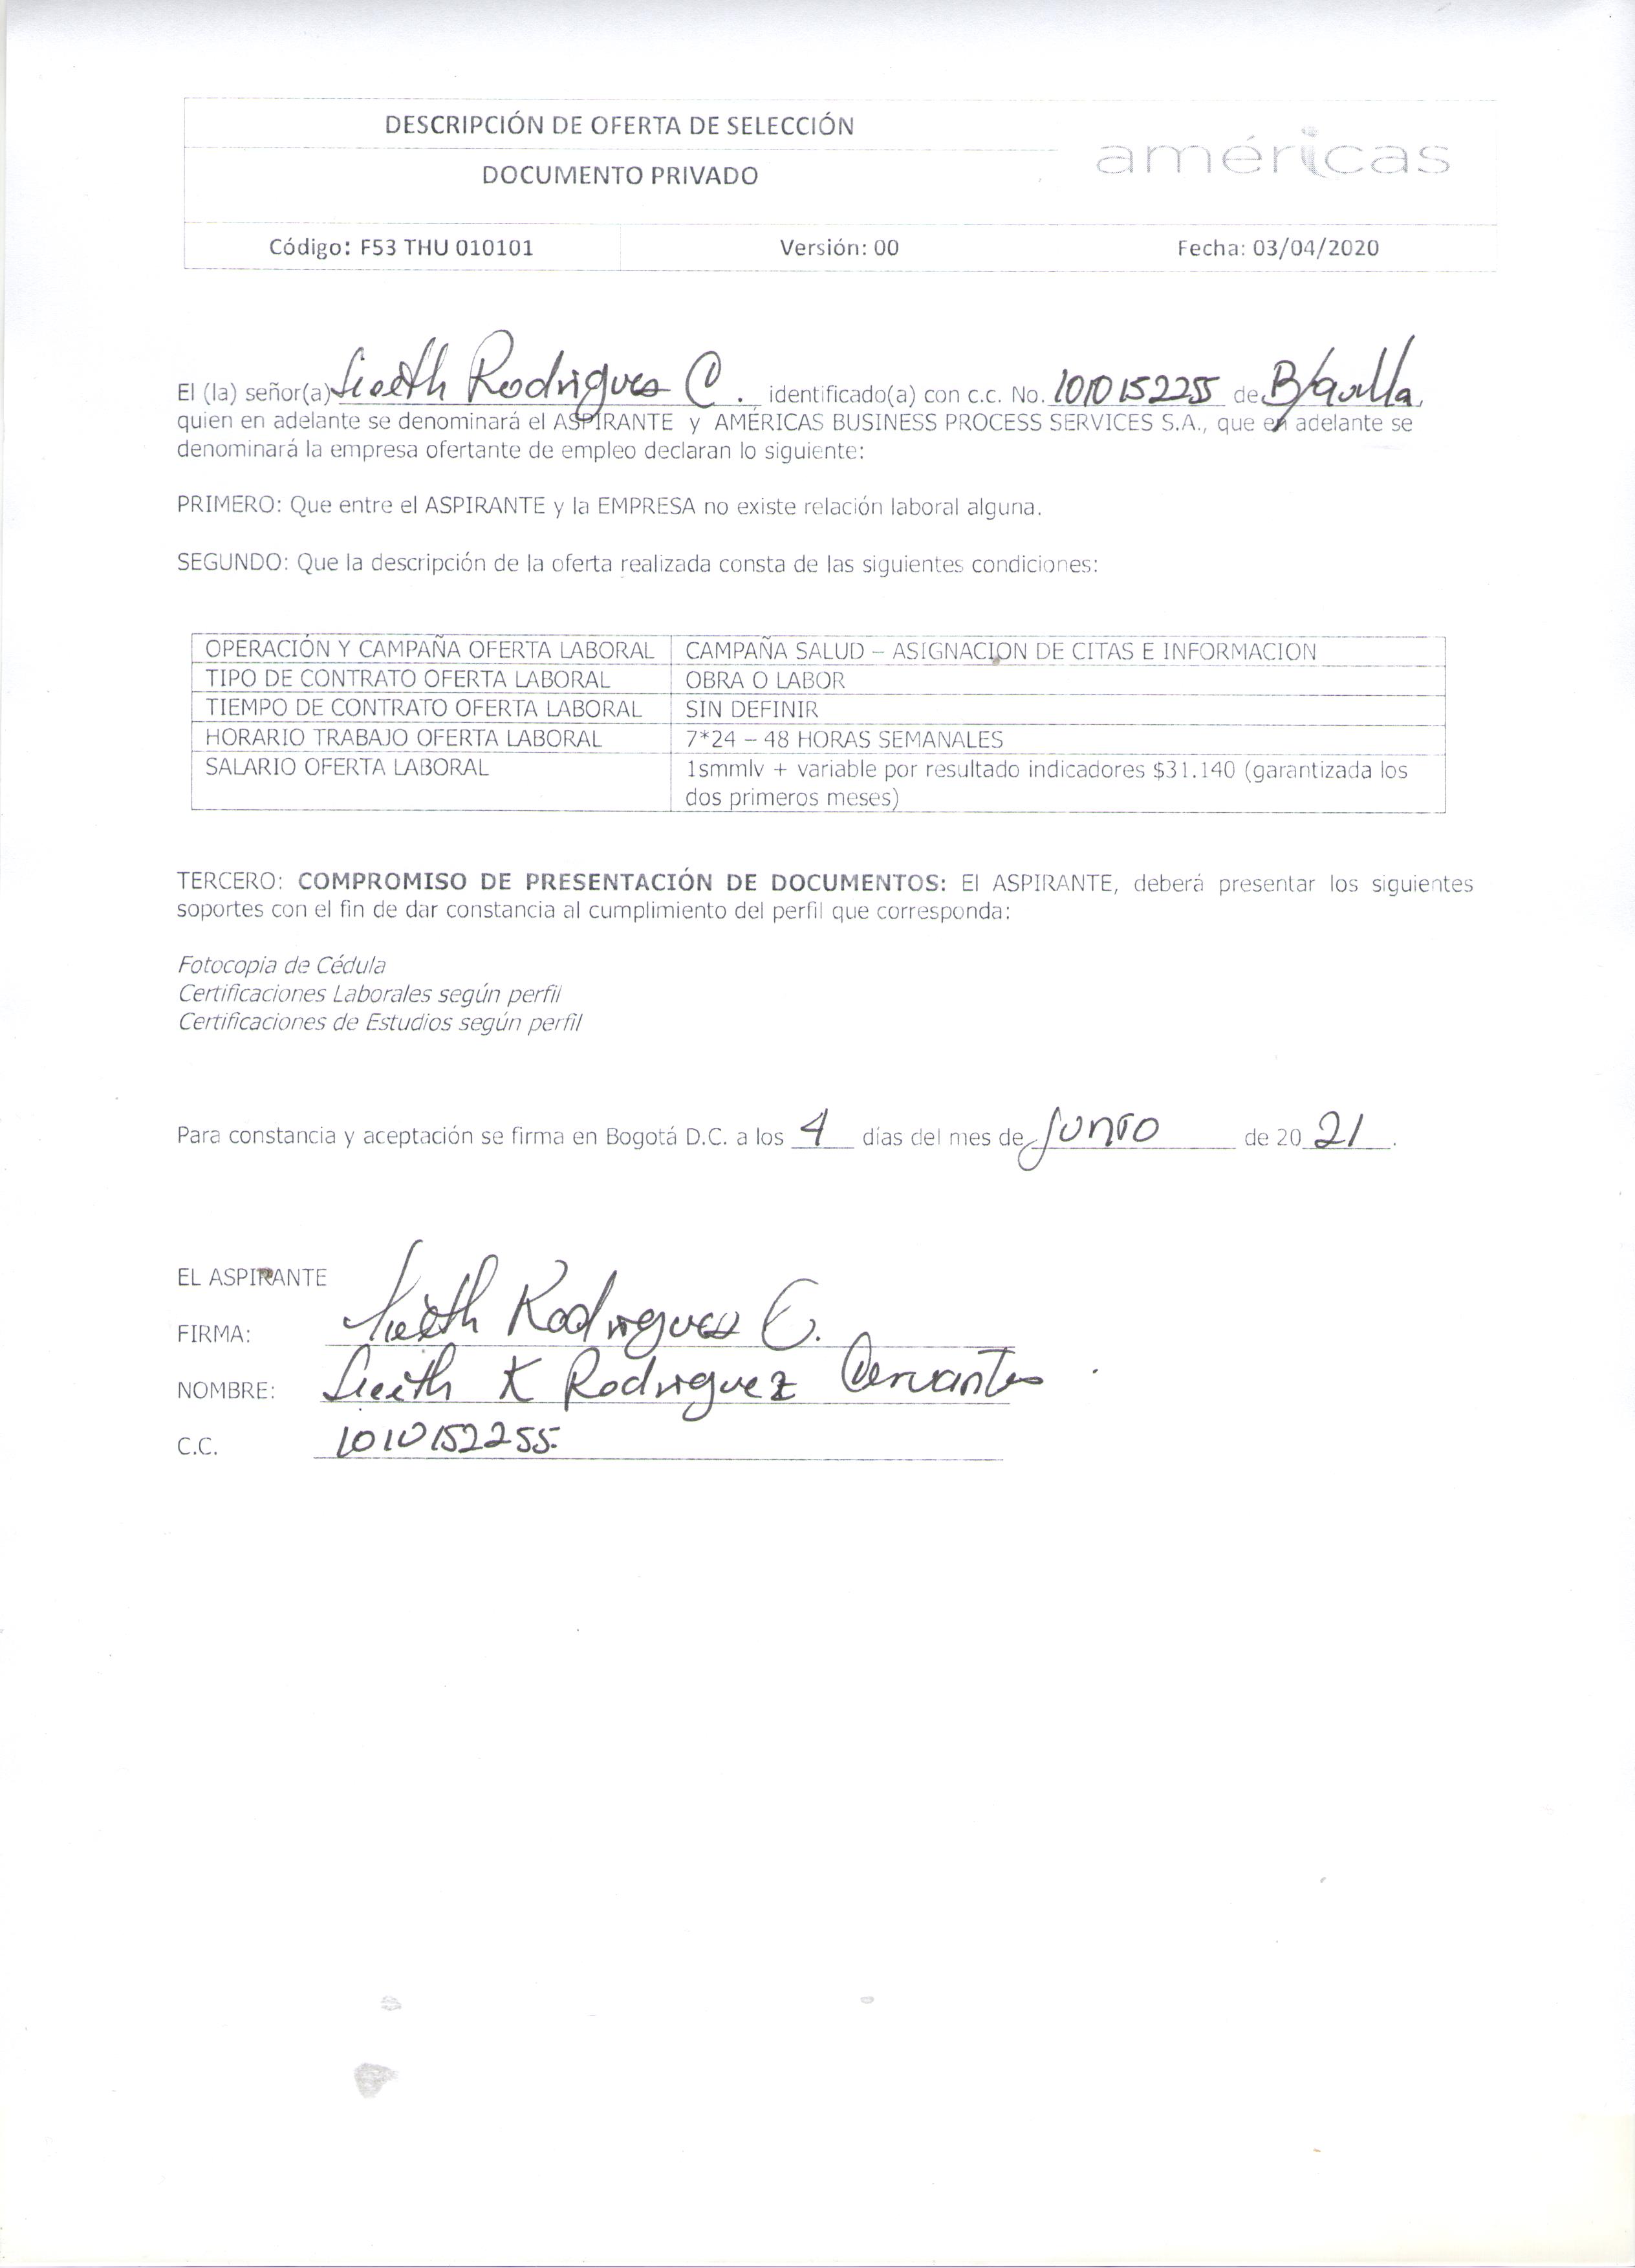 DESCRIPCIÓN DE OFERTA DE SELECCIÓN
américas
DOCUMENTO PRIVADO
Código: F53 THU 010101 Versión: 00 Fecha: 03/04/2020
El (la) señor(a) Rodrigues C. identificado(a) con c.c. No. 1010152255 de B/quilla,
quien en adelante se denominará el ASPIRANTE y AMÉRICAS BUSINESS PROCESS SERVICES S.A., que en adelante se
denominará la empresa ofertante de empleo declaran lo siguiente:
PRIMERO: Que entre el ASPIRANTE y la EMPRESA no existe relación laboral alguna.
SEGUNDO: Que la descripción de la oferta realizada consta de las siguientes condiciones:
OPERACIÓN Y CAMPAÑA OFERTA LABORAL CAMPAÑA SALUD – ASIGNACION DE CITAS E INFORMACION
TIPO DE CONTRATO OFERTA LABORAL OBRA O LABOR
TIEMPO DE CONTRATO OFERTA LABORAL SIN DEFINIR
HORARIO TRABAJO OFERTA LABORAL 7*24 – 48 HORAS SEMANALES
SALARIO OFERTA LABORAL 1smmlv + variable por resultado indicadores $31.140 (garantizada los
dos primeros meses)
TERCERO: COMPROMISO DE PRESENTACIÓN DE DOCUMENTOS: El ASPIRANTE, deberá presentar los siguientes
soportes con el fin de dar constancia al cumplimiento del perfil que corresponda:
Fotocopia de Cédula
Certificaciones Laborales según perfil
Certificaciones de Estudios según perfil
Para constancia y aceptación se firma en Bogotá D.C. a los 4 días del mes de Junio de 20 21.
EL ASPIRANTE
FIRMA: Rodrigues C.
NOMBRE: K Rodriguez Cervantes
C.C. 1010152255.